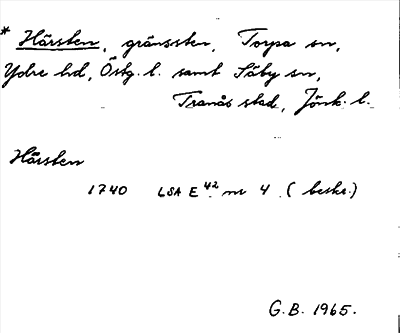 * Härsten, gränssten, Torpa sn,
Ydre hd, Östg. l. samt Säby sn,
Tranås stad, Jönk. l.
Härsten
1740 LSA E 42 nr 4 (beskr.)
G.B. 1965.